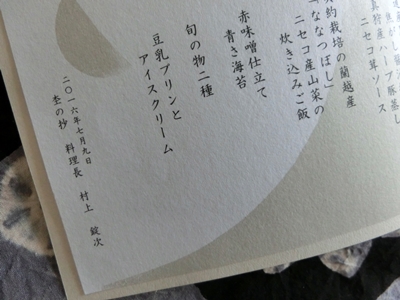 真狩産ハーブ豚蒸し
ニセコ茸ソース
契約栽培の蘭越産
「ななつぼし」
ニセコ産山菜の
炊き込みご飯
赤味噌仕立て
青さ海苔
旬の物二種
豆乳プリンと
アイスクリーム
二〇一六年七月九日
杢の抄 料理長 村上 錠次